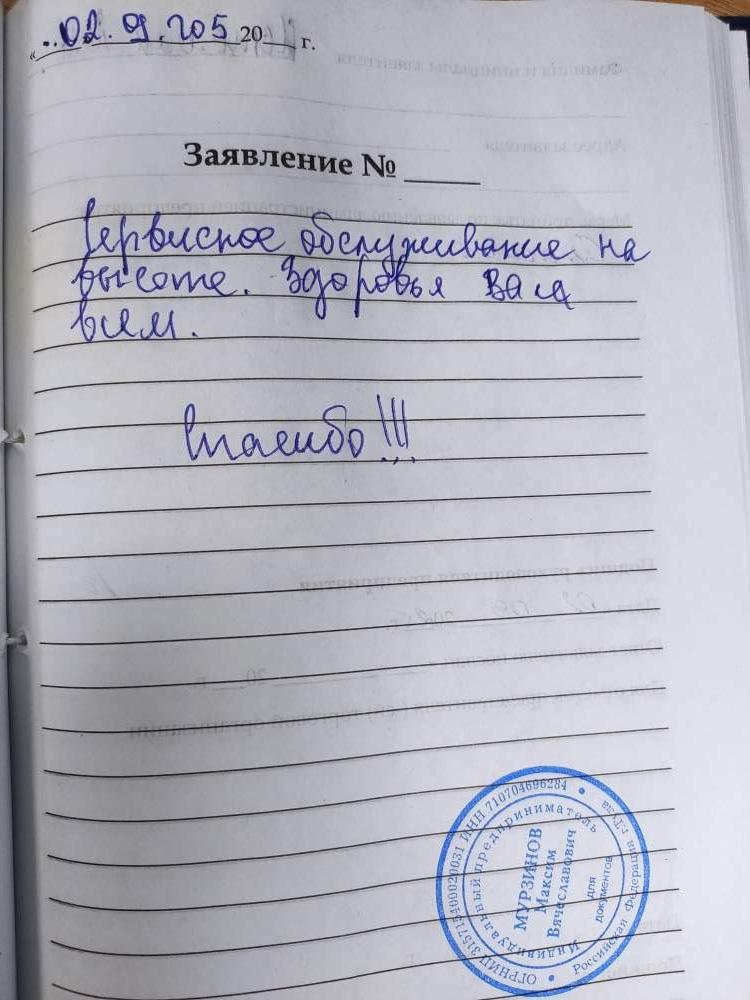 «..02.09.205 20___ г.
Заявление № _____
Сервисное обслуживание на
высоте. Здоровья Вам
всем.
Спасибо!!!
ОГРНИП 315715400020031 ИНН 710704696284
Российская Федерация г.Тула
Индивидуальный предприниматель
МУРЗИНОВ
Максим
Вячеславович
для
документов